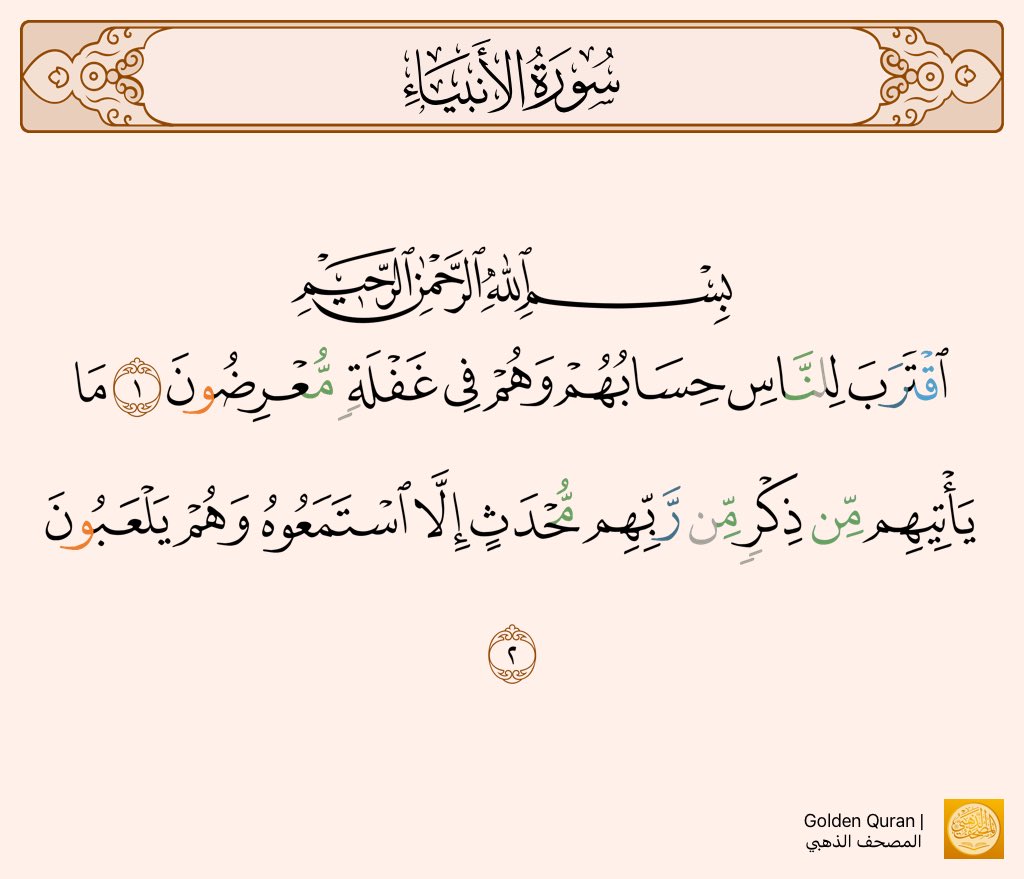 سُورَةُ الأَنبَيَاءِ
بِسْمِ ٱللَّهِ ٱلرَّحْمَٰنِ ٱلرَّحِيمِ
ٱقْتَرَبَ لِلنَّاسِ حِسَابُهُمْ وَهُمْ فِى غَفْلَةٍ مُّعْرِضُونَ ١ مَا
يَأْتِيهِم مِّن ذِكْرٍ مِّن رَّبِّهِم مُّحْدَثٍ إِلَّا ٱسْتَمَعُوهُ وَهُمْ يَلْعَبُونَ
٢
Golden Quran |
المصحف الذهبي